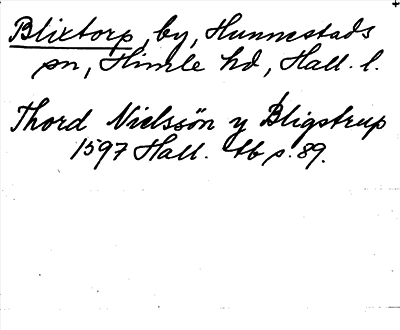 Blixtorp, by, Hunnestads
sn, Himle hd, Hall. l.
Thord Nielssön y Bligstrup
1597 Hall. tb s. 89.